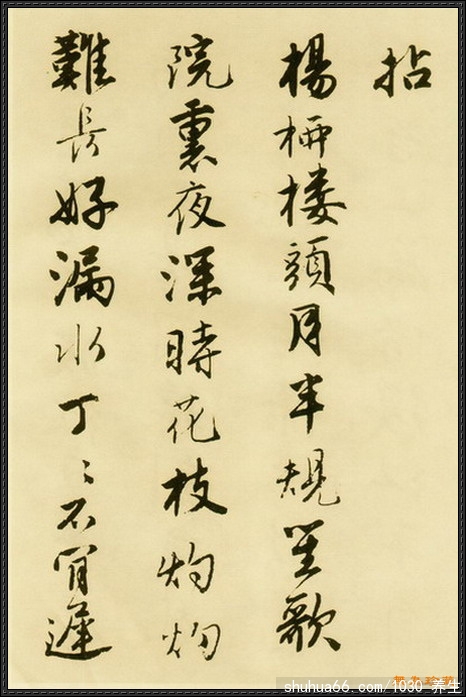 拈
楊柳樓頭月半規笙歌
院裏夜深時花枝灼灼
難長好漏水丁丁不肯遲
shuhua66.com/1030-养生